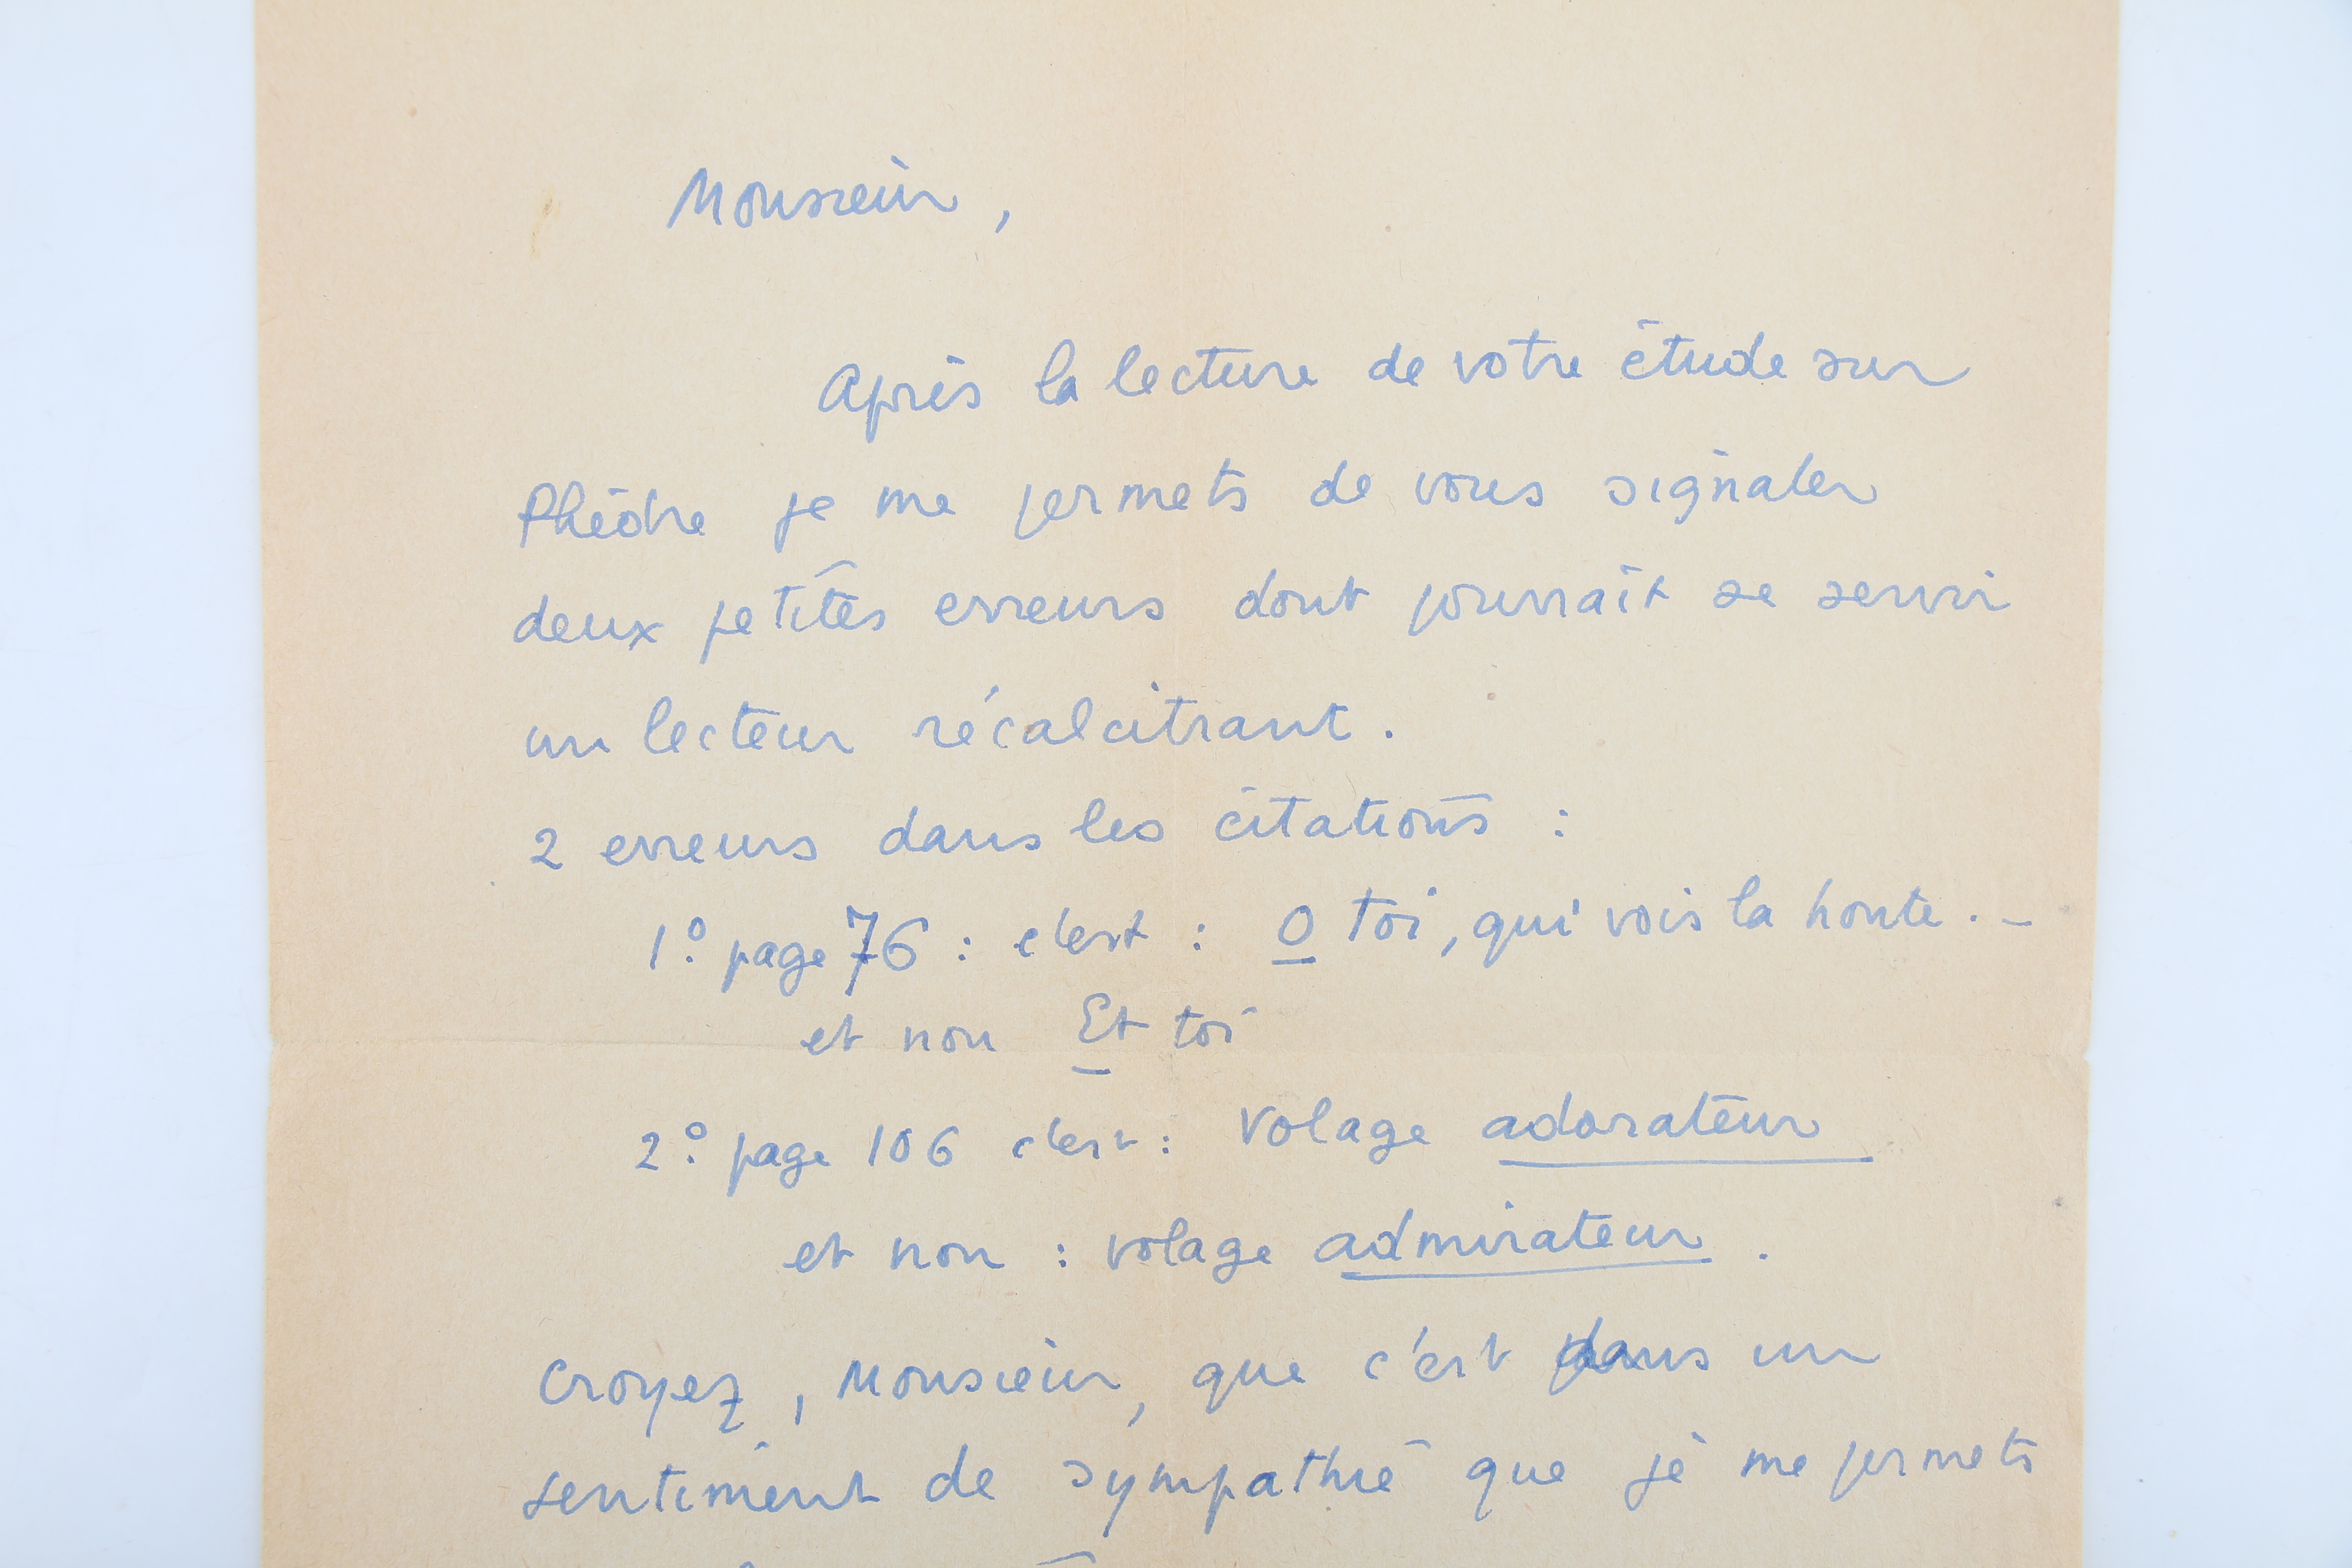 Monsieur,
Après la lecture de votre étude sur
Phèdre je me permets de vous signaler
deux petites erreurs dont pourrait se servir
un lecteur récalcitrant.
2 erreurs dans les citations :
1° page 76 : c'est : O toi, qui vois la honte . –
et non Et toi
2° page 106 c'est : Volage adorateur
et non : volage admirateur .
Croyez, Monsieur, que c'est dans un
sentiment de sympathie que je me permets